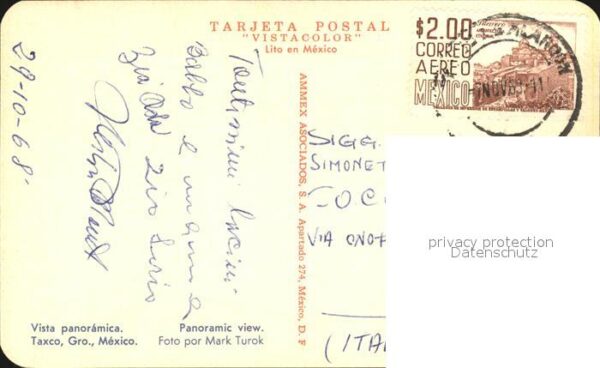 TARJETA POSTAL
"VISTACOLOR"
Lito en México
$2.00
CORREO
AEREO
MÉXICO
NOV 68
29-10-68
Tantissimi bacini
Babbo e mamma
Zia Ada Zio Dario
AMMEX ASOCIADOS, S. A. Apartado 274, México, D. F
SIGG.
SIMONET
VIA
(ITA
privacy protection
Datenschutz
Vista panorámica.
Taxco, Gro., México.
Panoramic view.
Foto por Mark Turok